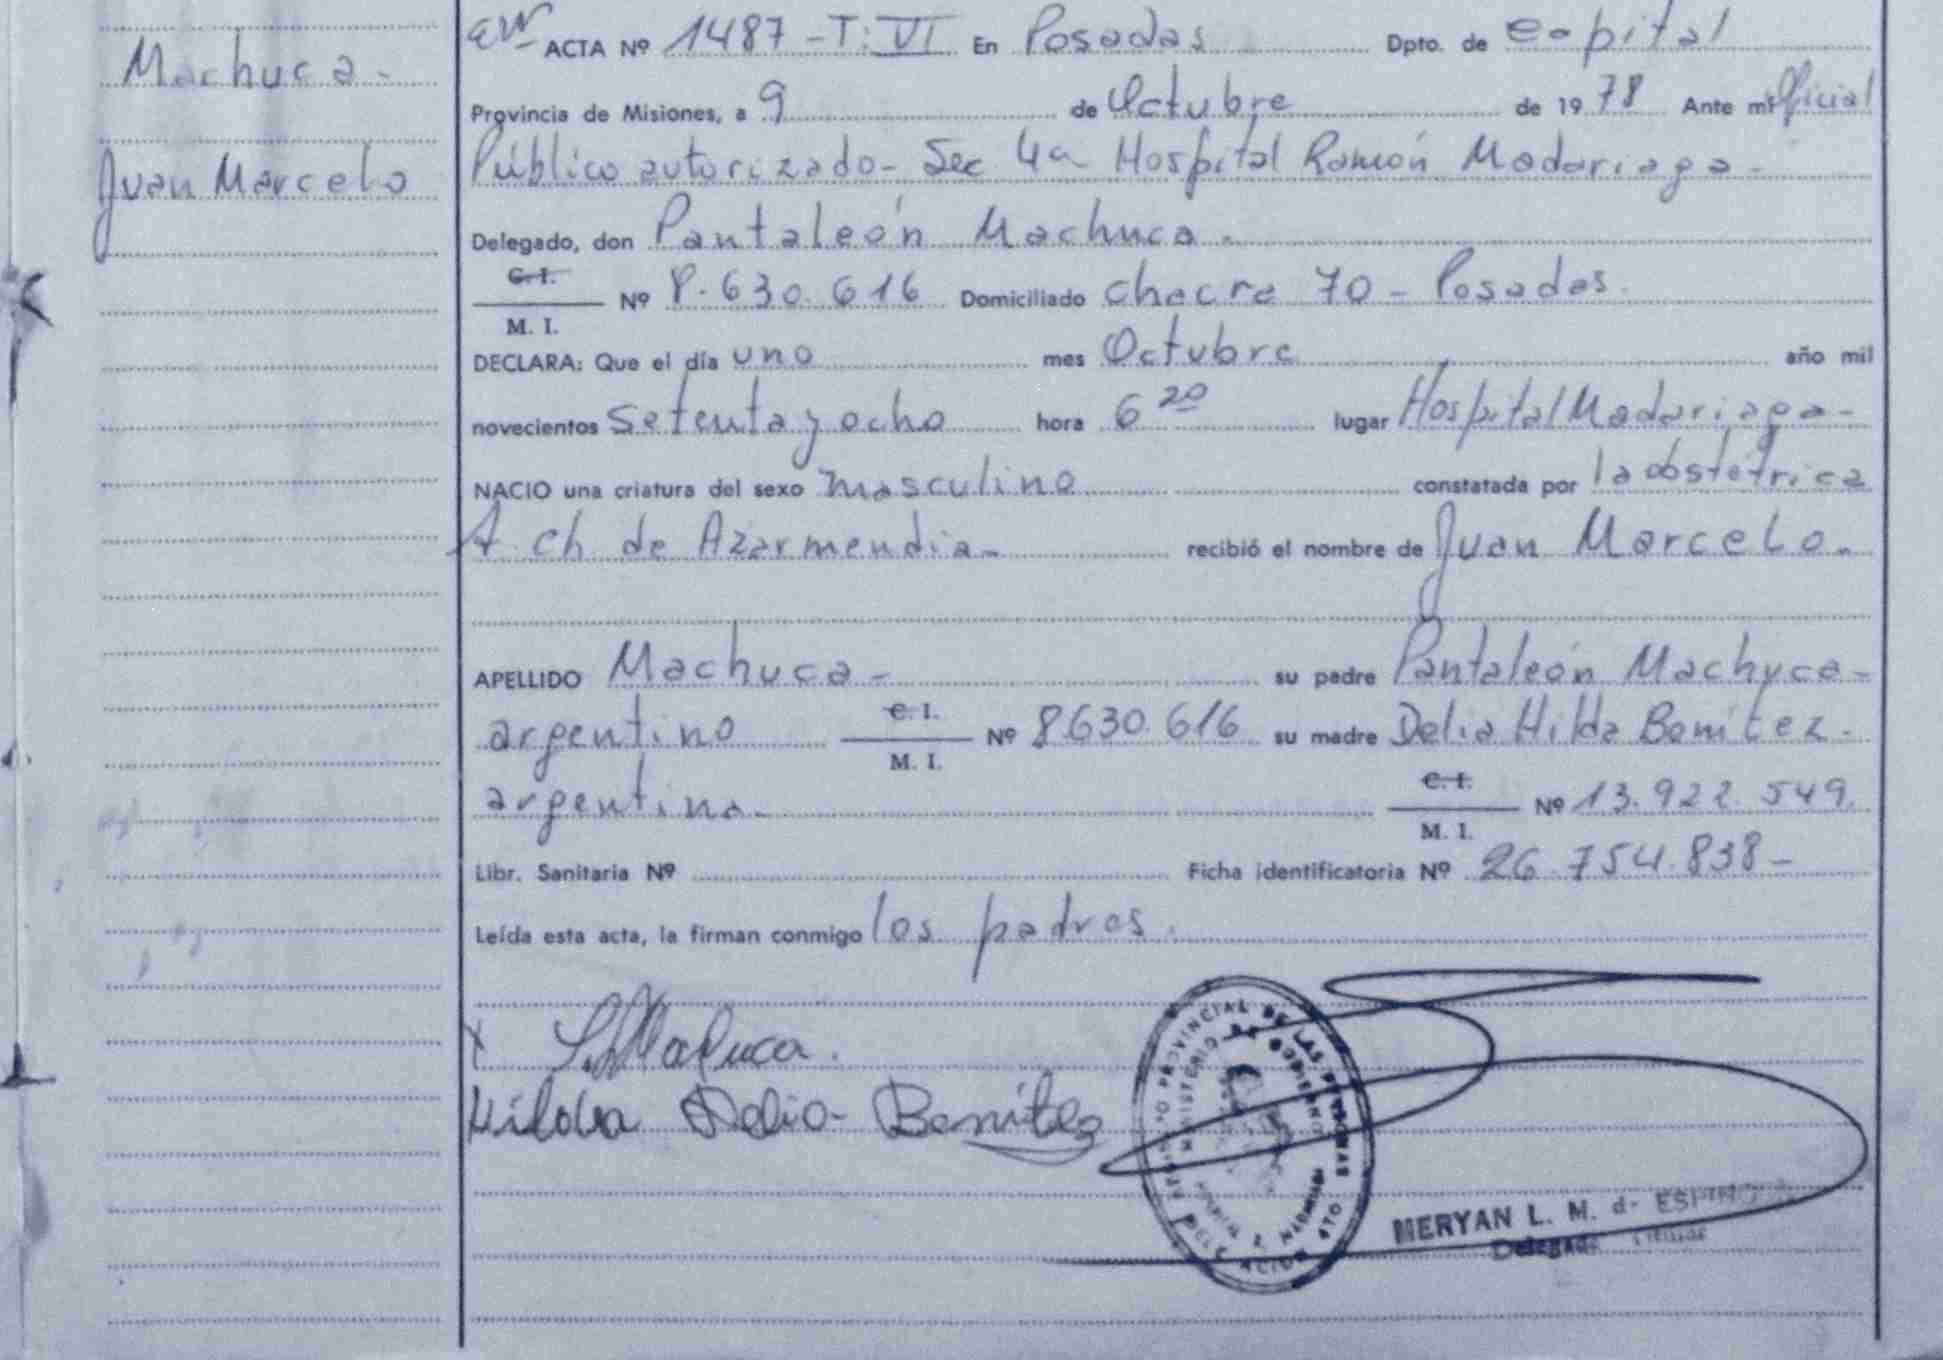 Machuca -
Juan Marcelo
ACTA Nº 1487 - T: VI En Posadas Dpto. de Capital
Provincia de Misiones, a 9 de Octubre de 1978 Ante mí Oficial
Público autorizado - Sec 4a Hospital Ramón Madariaga -
Delegado, don Pantaleón Machuca -
C. I.
Nº 8.630.616 Domiciliado chacra 70 - Posadas.
M. I.
DECLARA: Que el día uno mes Octubre año mil
novecientos Setenta y ocho hora 6 20 lugar Hospital Madariaga -
NACIO una criatura del sexo masculino constatada por la obstétrica
A. Ch de Azarmendia - recibió el nombre de Juan Marcelo -
APELLIDO Machuca - su padre Pantaleón Machuca -
argentino C. I. Nº 8.630.616 su madre Delia Hilda Benítez -
M. I.
argentina - C. I. Nº 13.922.549.
M. I.
Libr. Sanitaria Nº Ficha identificatoria Nº 26.754.838 -
Leída esta acta, la firman conmigo los padres.
Machuca.
Hilda Delia Benítez
PROVINCIAL DE LAS PERSONAS
MINISTERIO DE GOBIERNO
MERYAN L. M. de ESPINOZA
Delegada Titular